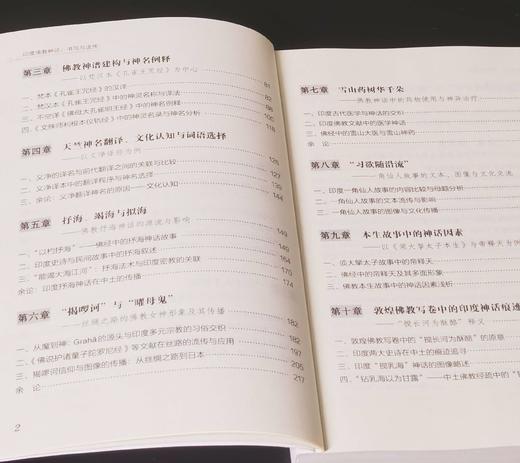 印度佛教神话：书写与流传
第三章 佛教神谱建构与神名阐释
——以梵汉本《孔雀王咒经》为中心 81
一、梵本《孔雀王咒经》的汉译 82
二、梵汉本《孔雀王咒经》中的神灵名称与译法
三、不空译《佛母大孔雀明王经》中的神名阐释
四、《文殊师利根本仪轨经》中的神灵名录与分析
第四章 天竺神名翻译、文化认知与词语选择 126
——以义净译经为例
一、义净的译名与前代翻译之间的关联与比较
二、义净译本中的翻译程序与神名选择
三、余论：义净译神名的原因——文化认知 144
第五章 抒海、竭海与拟海 149
——佛教抒海神话的源流与影响
一、“以杓抒海”——佛经中的抒海神话故事 149
二、印度史诗与民间故事中的抒海叙述
三、“能竭大海江河”：抒海法术与印度密教的关联 170
余论：印度抒海神话在中土的传播 174
第六章 “揭啰诃”与“曜母鬼” 182
——丝绸之路的佛教女神形象及其传播
一、从魔到神：Grahā的源头与印度多元宗教的习俗交织 182
二、《佛说护诸童子陀罗尼经》等文献在丝路的流传与应用 197
三、揭啰诃信仰与图像的传播：从丝绸之路到日本 205
余 论 217
2
第七章 雪山药树华千朵
——佛教神话中的药物使用与神异治疗
一、印度古代医学与神话的交织
二、印度佛教文献中的医学神话
三、佛经中的雪山大医与雪山神药
余论
第八章 “习欲随沿流”
——一角仙人故事的文本、图像与文化交流
一、印度一角仙人故事的内容比较与母题分析
二、一角仙人故事的文本流传与影响
三、一角仙人故事的图像与文化传播
第九章 本生故事中的神话因素
——以《须大拏太子本生》与帝释天为例
一、须大拏太子故事中的帝释天
二、佛经中的帝释天及其多面形象
三、佛教本生故事中的神话因素浅析
第十章 敦煌佛教写卷中的印度神话痕迹
——“搅长河为酥酪”释义
一、敦煌佛教写卷中的“搅长河为酥酪”的原意
二、印度两大史诗在中土的痕迹追寻
三、印度“搅乳海”神话的图像略述
四、“钻乳海以为甘露”——中土佛教经疏中的“